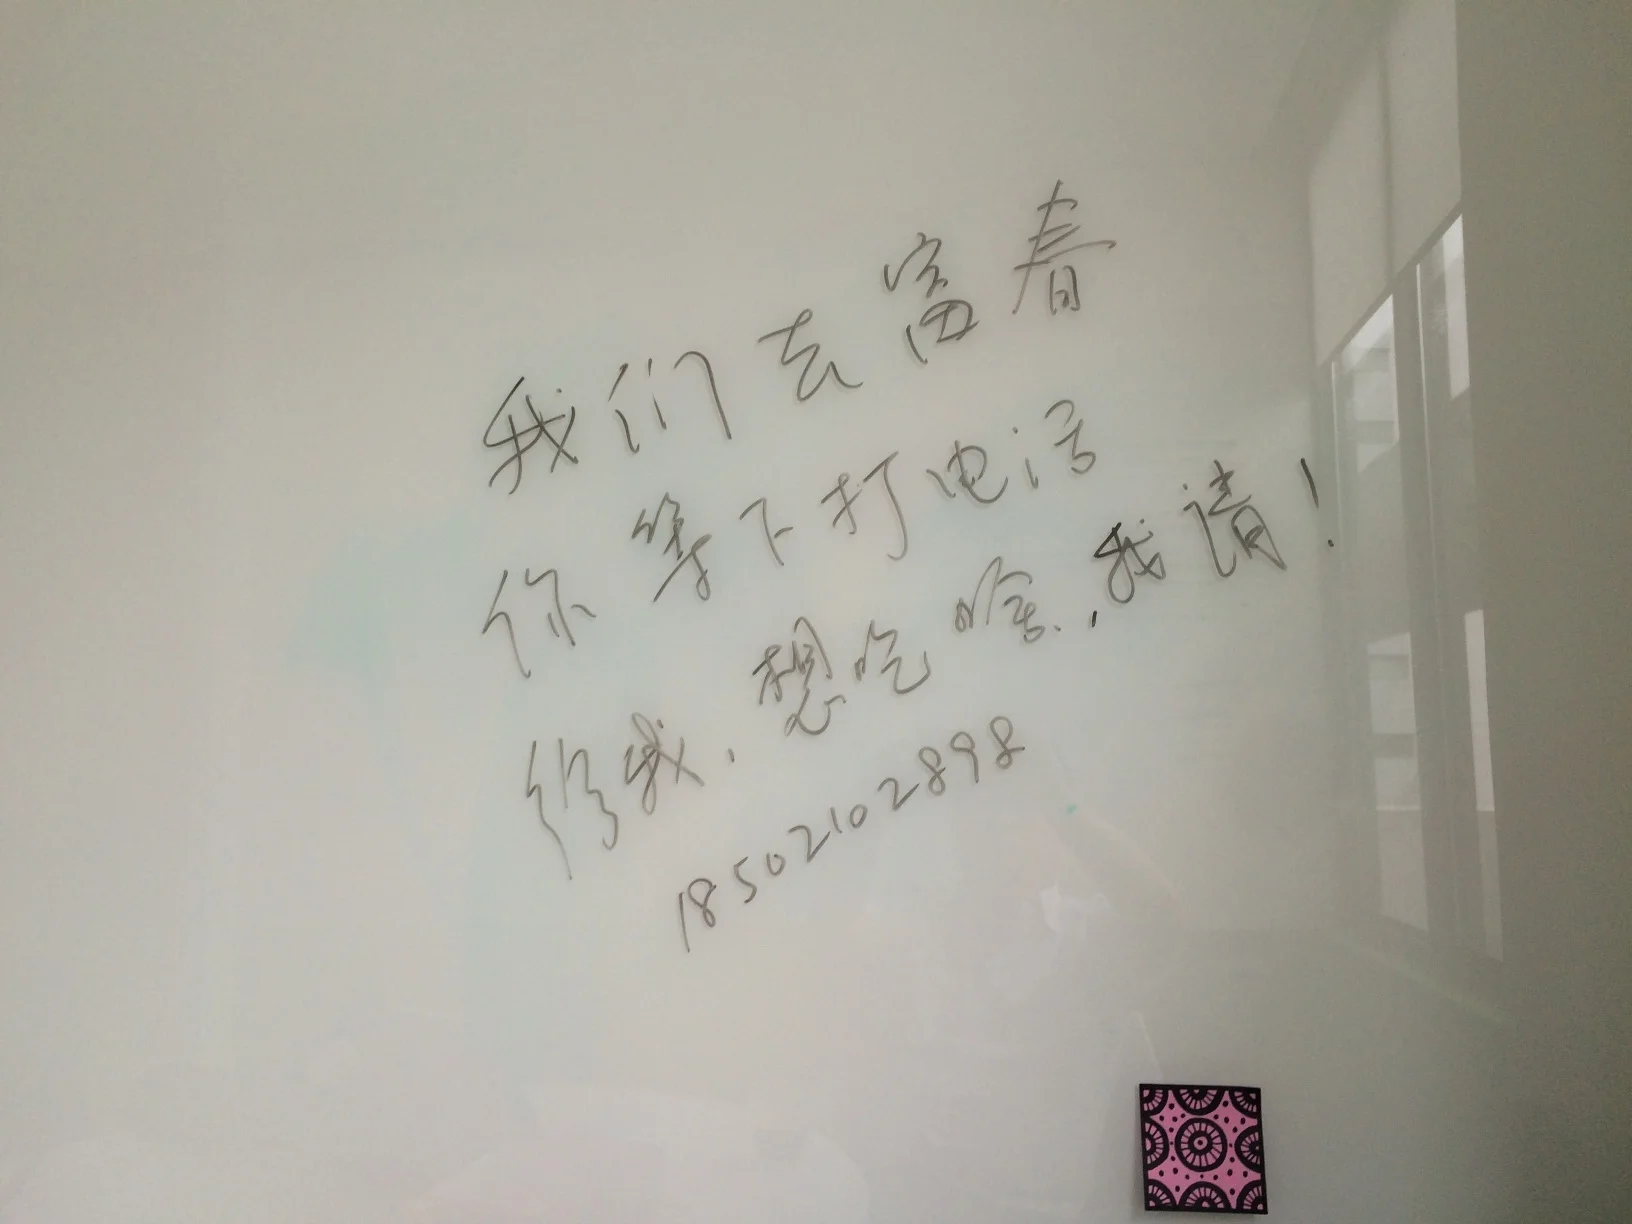 我们去富春
你等下打电话
给我，想吃啥，我请！
18502102898